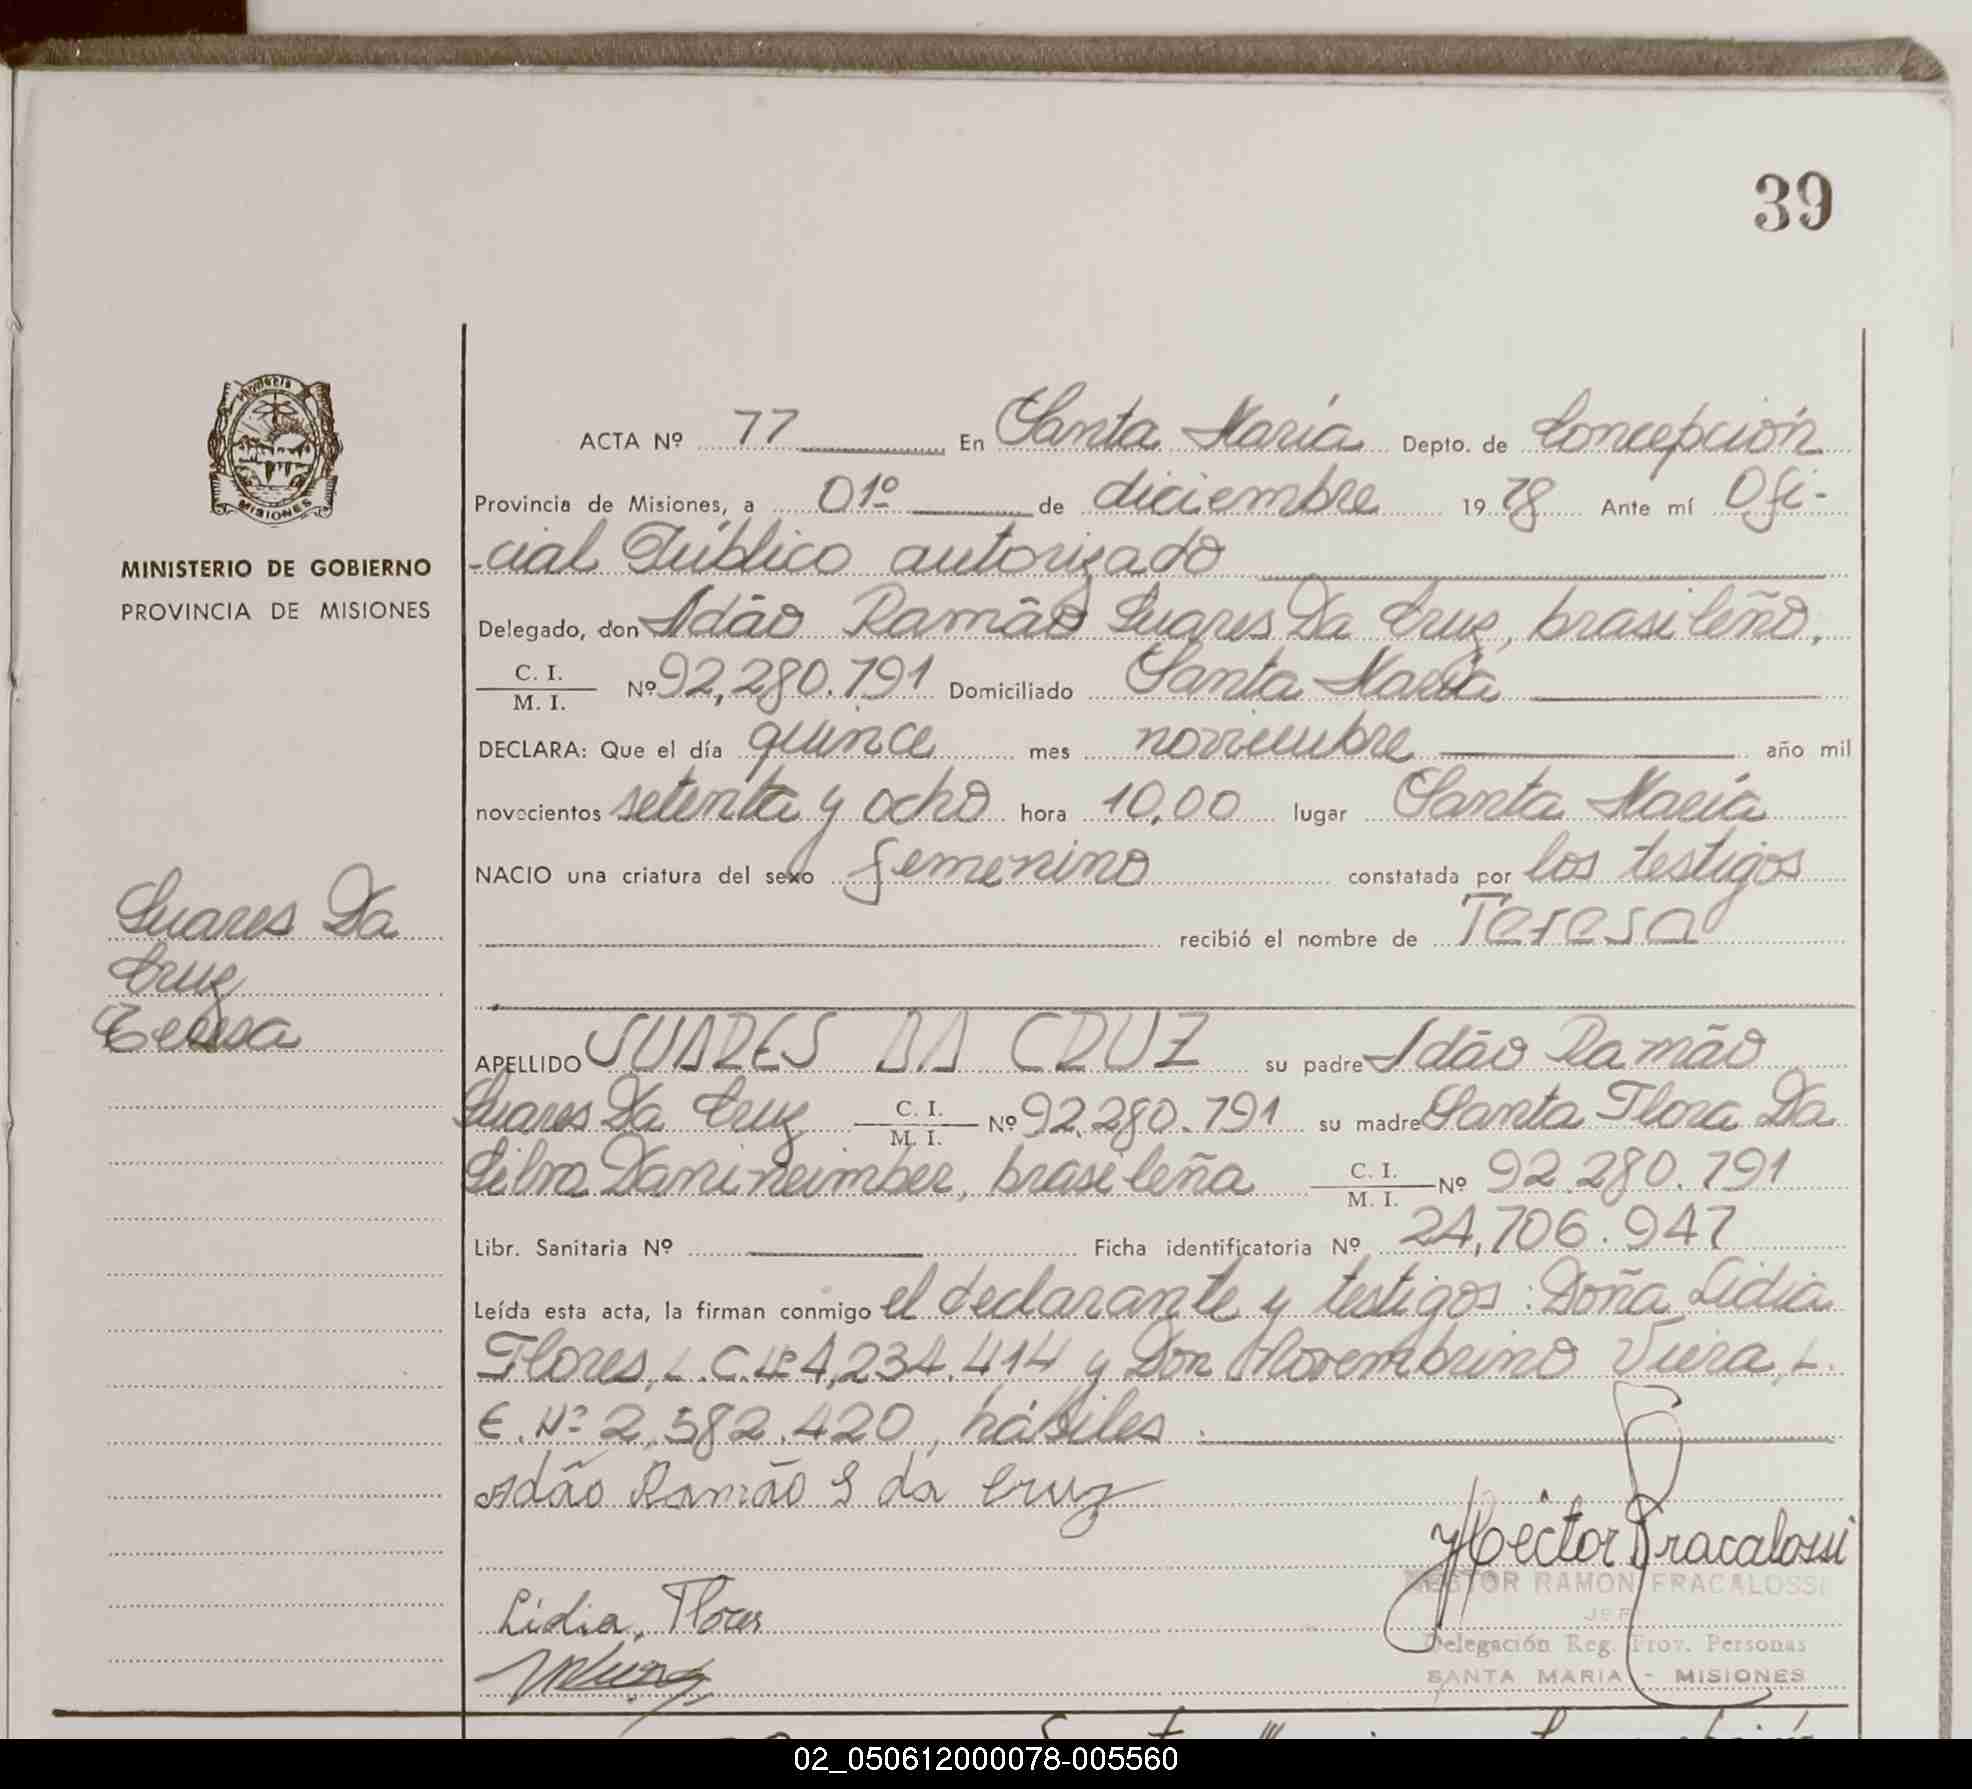 39
ACTA Nº 77 En Santa María Depto. de Concepción
Provincia de Misiones, a 01º de diciembre 1978 Ante mí Ofi-
-cial Público autorizado
MINISTERIO DE GOBIERNO
PROVINCIA DE MISIONES
Delegado, don Adão Ramão Suares Da Cruz, brasileño,
C. I.
M. I. Nº 92,280.791 Domiciliado Santa María
DECLARA: Que el día quince mes noviembre año mil
novecientos setenta y ocho hora 10,00 lugar Santa María
NACIO una criatura del sexo femenino constatada por los testigos
recibió el nombre de Teresa
Suares Da
Cruz
Teresa
APELLIDO SUARES DA CRUZ su padre Adão Ramão
Suares Da Cruz C. I. M. I. Nº 92.280.791 su madre Santa Flora Da
Silva, brasileña C. I. M. I. Nº 92.280.791
Libr. Sanitaria Nº Ficha identificatoria Nº 24,706.947
Leída esta acta, la firman conmigo el declarante y testigos: Doña Lidia
Flores, L.C. Nº 4,234.414 y Don Novembrino Viera, L.
E. Nº 2,582.420, hábiles.
Adão Ramão S da Cruz
Héctor Fracalossi
HECTOR RAMON FRACALOSSI
JEFE
Delegación Reg. Prov. Personas
SANTA MARIA - MISIONES
Lidia Flores
02_050612000078-005560